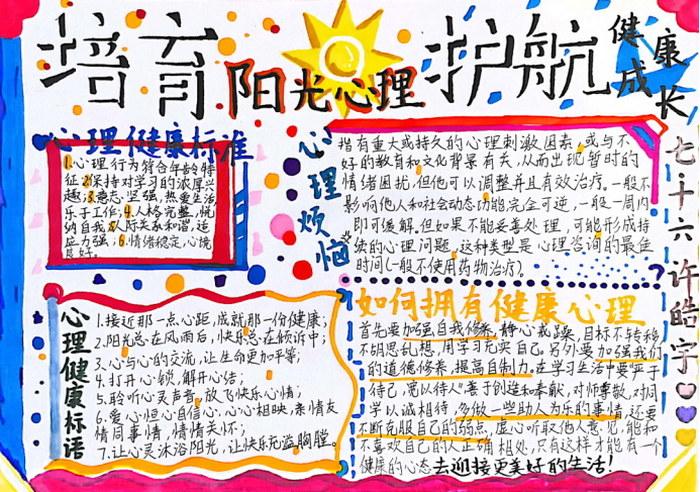 培育阳光心理 护航健康成长
七十六 许皓宇
心理健康标准
1.心理行为符合年龄特
征;2.保持对学习的浓厚兴
趣;3.意志坚强,热爱生活
乐于工作;4.人格完整,悦
纳自我;5.人际关系和谐,适
应力强;6.情绪稳定,心境
良好。
心理烦恼
指有重大或持久的心理刺激因素,或与不
好的教育和文化背景有关,从而出现暂时的
情绪困扰,但他可以调整并且有效治疗。一般不
影响他人和社会动态功能,完全可逆,一般一周内
即可缓解。但如果不能妥善处理,可能形成持
续的心理问题,这种类型是心理咨询的最佳
时间(一般不使用药物治疗)。
心理健康标语
1.接近那一点心距,成就那一份健康;
2.阳光总在风雨后,快乐总在倾诉中;
3.心与心的交流,让生命更加平等;
4.打开心锁,解开心结;
5.聆听心灵声音,放飞快乐心情;
6.爱心恒心自信心,心心相映,亲情友
情同事情,情情关怀;
7.让心灵沐浴阳光,让快乐充溢胸膛。
如何拥有健康心理
首先要加强自我修养,静心戒躁,目标不转移
不胡思乱想,用学习充实自己。另外要加强我们
的道德修养,提高自制力。在学习生活中要严于
待己,宽以待人"善于创造和奉献,对师尊敬,对同
学以诚相待,多做一些助人为乐的事情,还要
不断克服自己的弱点,虚心听取他人意见,能和
不喜欢自己的人正确相处,只有这样才能有一个
健康的心态去迎接更美好的生活!